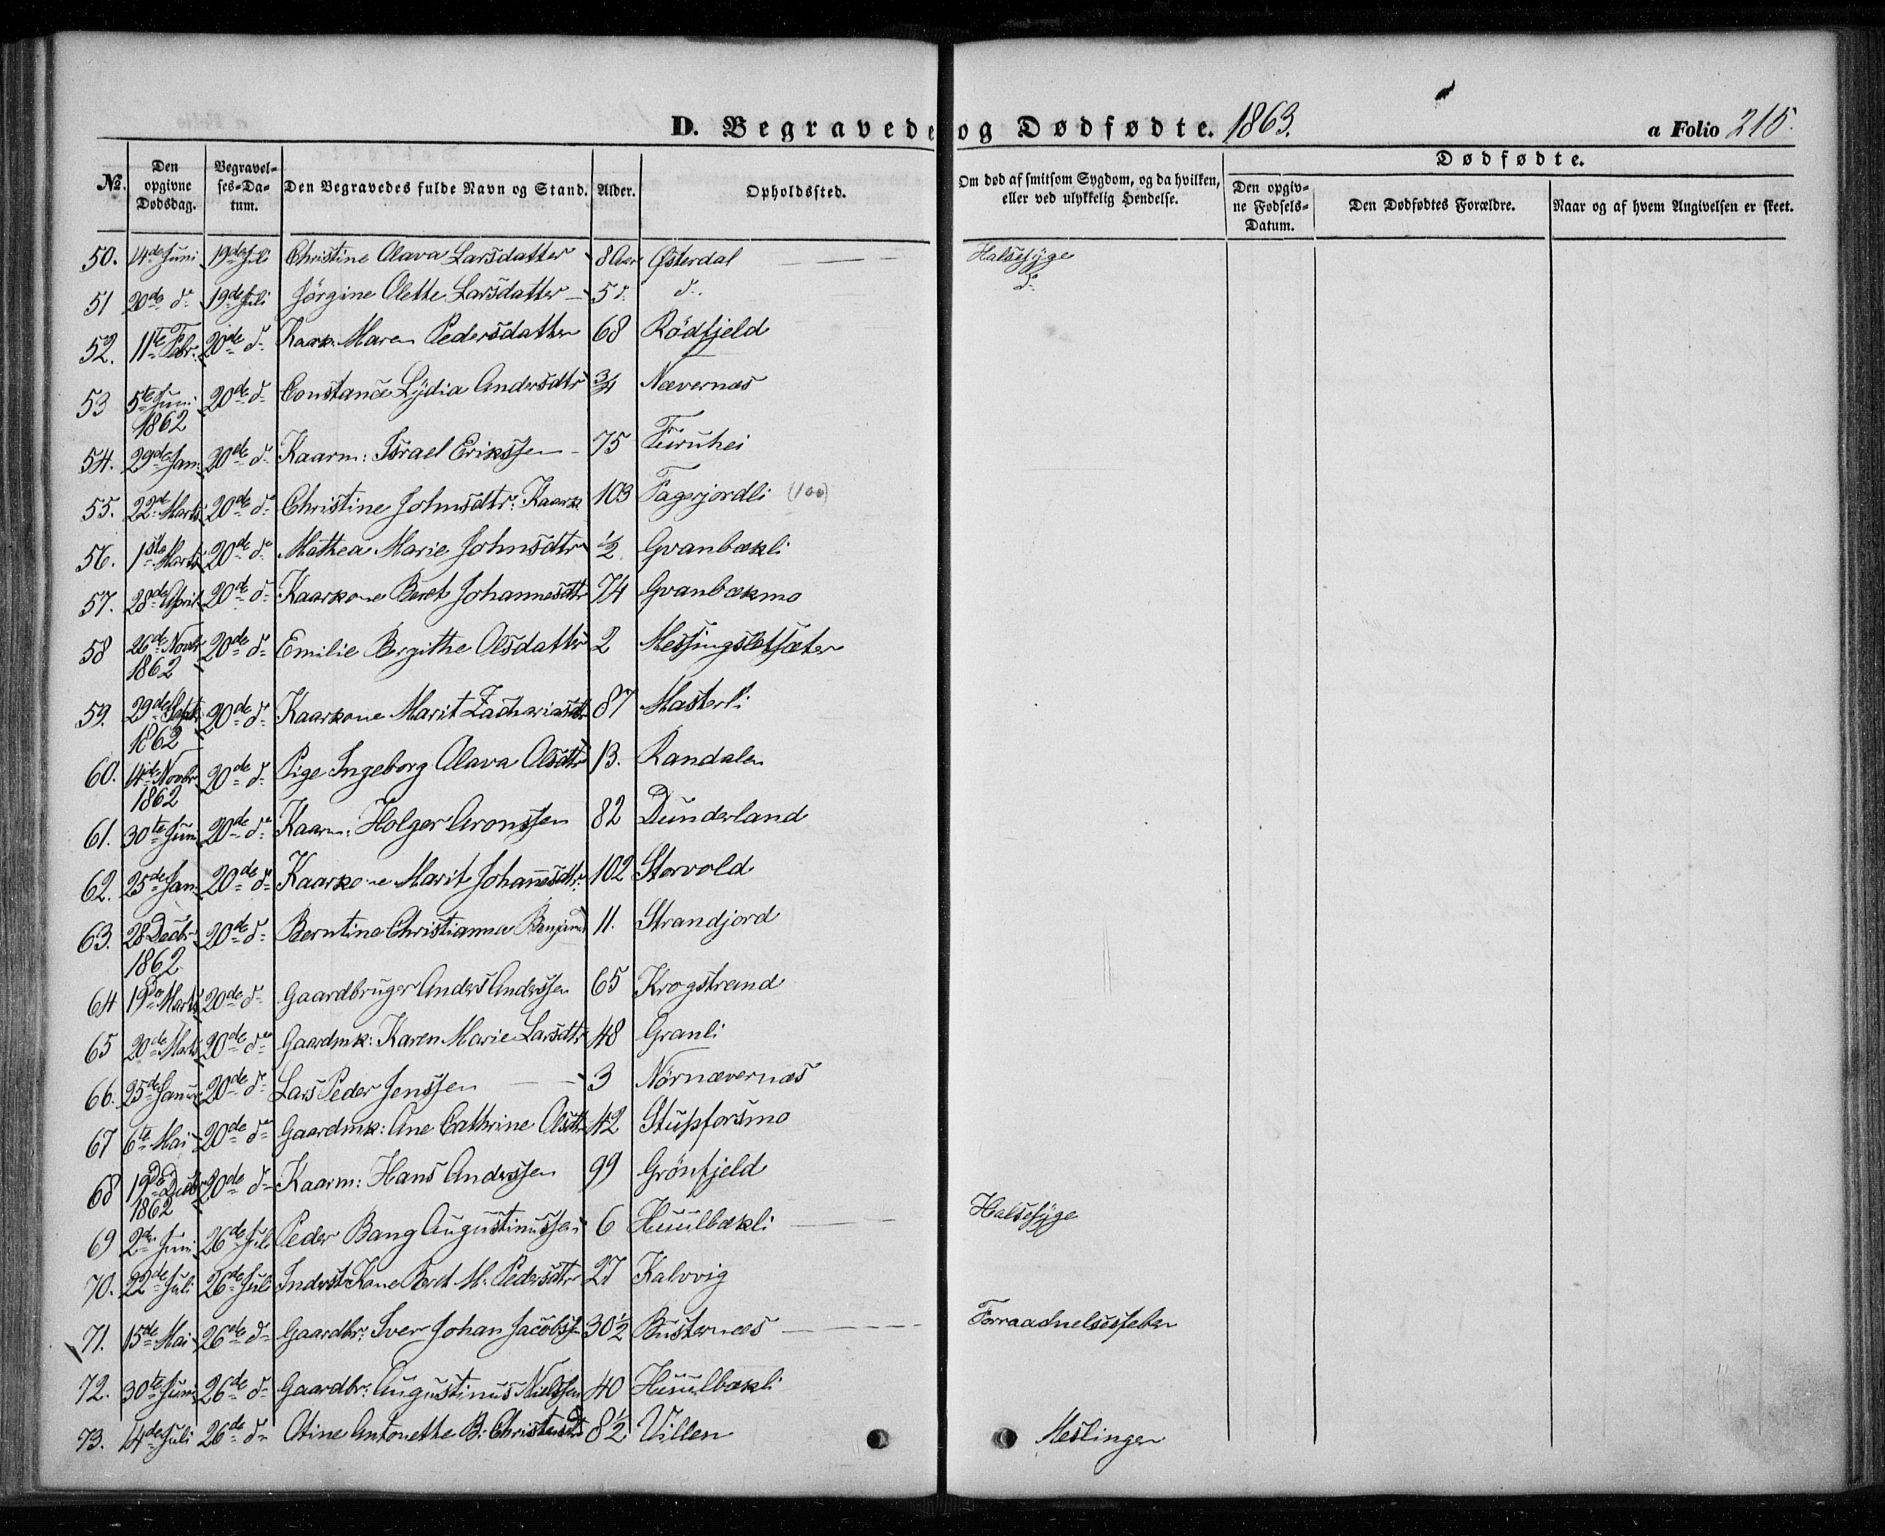 D. Begravede og Dødfødte. 1863. a Folio 215.
№. Den opgivne Dødsdag. Begravelses-Datum. Den Begravedes fulde Navn og Stand. Alder. Opholdssted. Om død af smitsom Sygdom, og da hvilken, eller ved ulykkelig Hendelse. Dødfødte. Den opgivne Fødsels-Datum. Den Dødfødtes Forældre. Naar og af hvem Angivelsen er skeet.
50. 14de Juni 19de Juli Christine Olava Larsdatter 8 Aar Østerdal Halsesyge
51 20de do 19de Juli Jørgine Olette Larsdatter 5 do do do
52. 11te Febr. 20de do Kaark. Maren Pedersdatter 68 Rödfjeld
53 5te Juni 1862 20de do Constance Lydia Andersdtr 3/4 Nævernæs
54. 29de Jan. 20de do Kaarm: Israel Erikssen 75 Furuhei
55. 22de Marts 20de do Christine Johnsdtr: Kaark 103 Fagerjordli (100)
56. 1ste Marts 20de do Mathea Marie Johnsdtr 1/2 Gvanbækli
57. 28de April 20de do Kaarkone Beret Johannesdtr 74 Gvanbækmo
58 26de Novbr 1862 20de do Emilie Bergithe Olsdatter 2 Messingsletsæter
59. 29de Septr 1862 20de do Kaarkone Marit Zachariasdtr 87 Masterli
60. 14de Novbr 1862 20de do Pige Ingeborg Olava Olsdtr 13. Randalen
61. 30te Juni 20de do Kaarm: Holger Aronssen 82 Dunderland
62. 25de Jan. 20de do Kaarkone Marit Johannesdtr. 102 Storvold
63. 28 Decbr 1862 20de do Berntine Christianna Benjamind 11. Strandjord
64 19de Marts 20de do Gaardbruger Anders Anderssen 65 Krogstrand
65 20de Marts 20de do Gaardmk: Karen Marie Larsdtr 48 Granli
66. 25de Januar 20de do Lars Peder Jenssen 3 Nörnævernæs
67 6te Mai 20de do Gaardmk: Ane Cathrine Olsdtr 42 Stupforsmo
68 19de Decbr 1862 20de do Kaarm: Hans Anderssen 99 Grönfjeld
69 2de Juni 26de Juli Peder Bang Augustinussen 6 Huulbækli Halsesyge
70. 22de Juli 26de Juli Inderst Kone Beret M. Pedersdtr 27 Kalvvig
71. 15de Mai 26de do Gaardbr: Iver Johan Jacobssn 30 1/2 Busternæs Forraadnelsesfeber
72. 30te Juni 26de do Gaardbr: Augustinus Nielssen 40 Huulbækli
73. 14de Juli 26de do Otine Antonette B. Christensd 8 1/2 Villen Meslinger